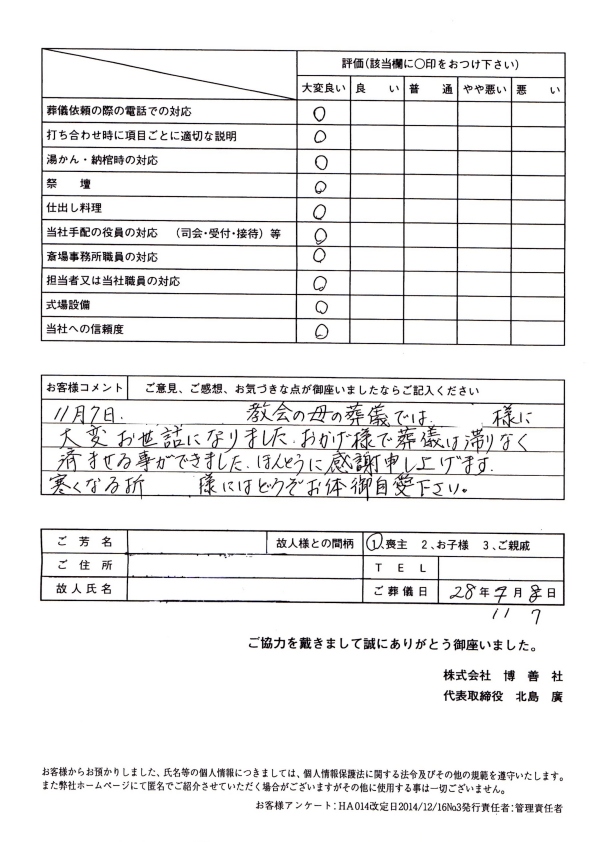 評価(該当欄に〇印をおつけ下さい)
大変良い 良い 普通 やや悪い 悪い
葬儀依頼の際の電話での対応 〇
打ち合わせ時に項目ごとに適切な説明 〇
湯かん・納棺時の対応 〇
祭壇 〇
仕出し料理 〇
当社手配の役員の対応 (司会・受付・接待)等 〇
斎場事務所職員の対応 〇
担当者又は当社職員の対応 〇
式場設備 〇
当社への信頼度 〇
お客様コメント ご意見、ご感想、お気づきな点が御座いましたならご記入ください
11月7日. 教会の母の葬儀では. 様に
大変お世話になりました.おかげ様で葬儀は滞りなく
済ませる事ができました.ほんとうに感謝申し上げます.
寒くなる折 様にはどうぞお体御自愛下さい。
ご芳名 故人様との間柄 ①.喪主 2、お子様 3、ご親戚
ご住所 TEL
故人氏名 ご葬儀日 28年9月8日
11 7
ご協力を戴きまして誠にありがとう御座いました。
株式会社 博善社
代表取締役 北島 廣
お客様からお預かりしました、氏名等の個人情報につきましては、個人情報保護法に関する法令及びその他の規範を遵守いたします。
また弊社ホームページにて匿名でご紹介させていただく場合がございますがその他に使用する事は一切ございません。
お客様アンケート:HA014改定日2014/12/16No3発行責任者:管理責任者